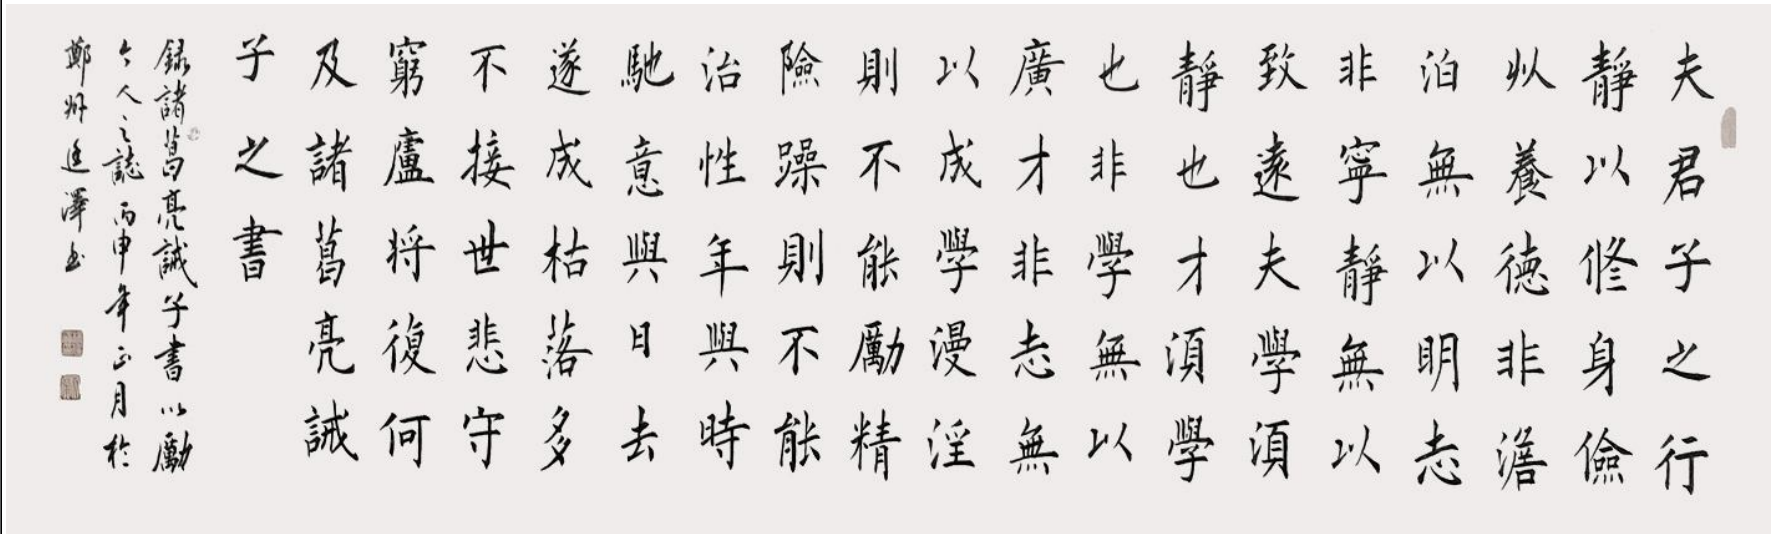 夫君子之行
靜以修身儉
以養德非澹
泊無以明志
非寧靜無以
致遠夫學須
靜也才須學
也非學無以
廣才非志無
以成學漫淫
則不能勵精
險躁則不能
治性年與時
馳意與日去
遂成枯落多
不接世悲守
窮廬将復何
及諸葛亮誡
子之書
録諸葛亮誡子書以勵
今人之誌丙申年正月於
鄭州廷澤书